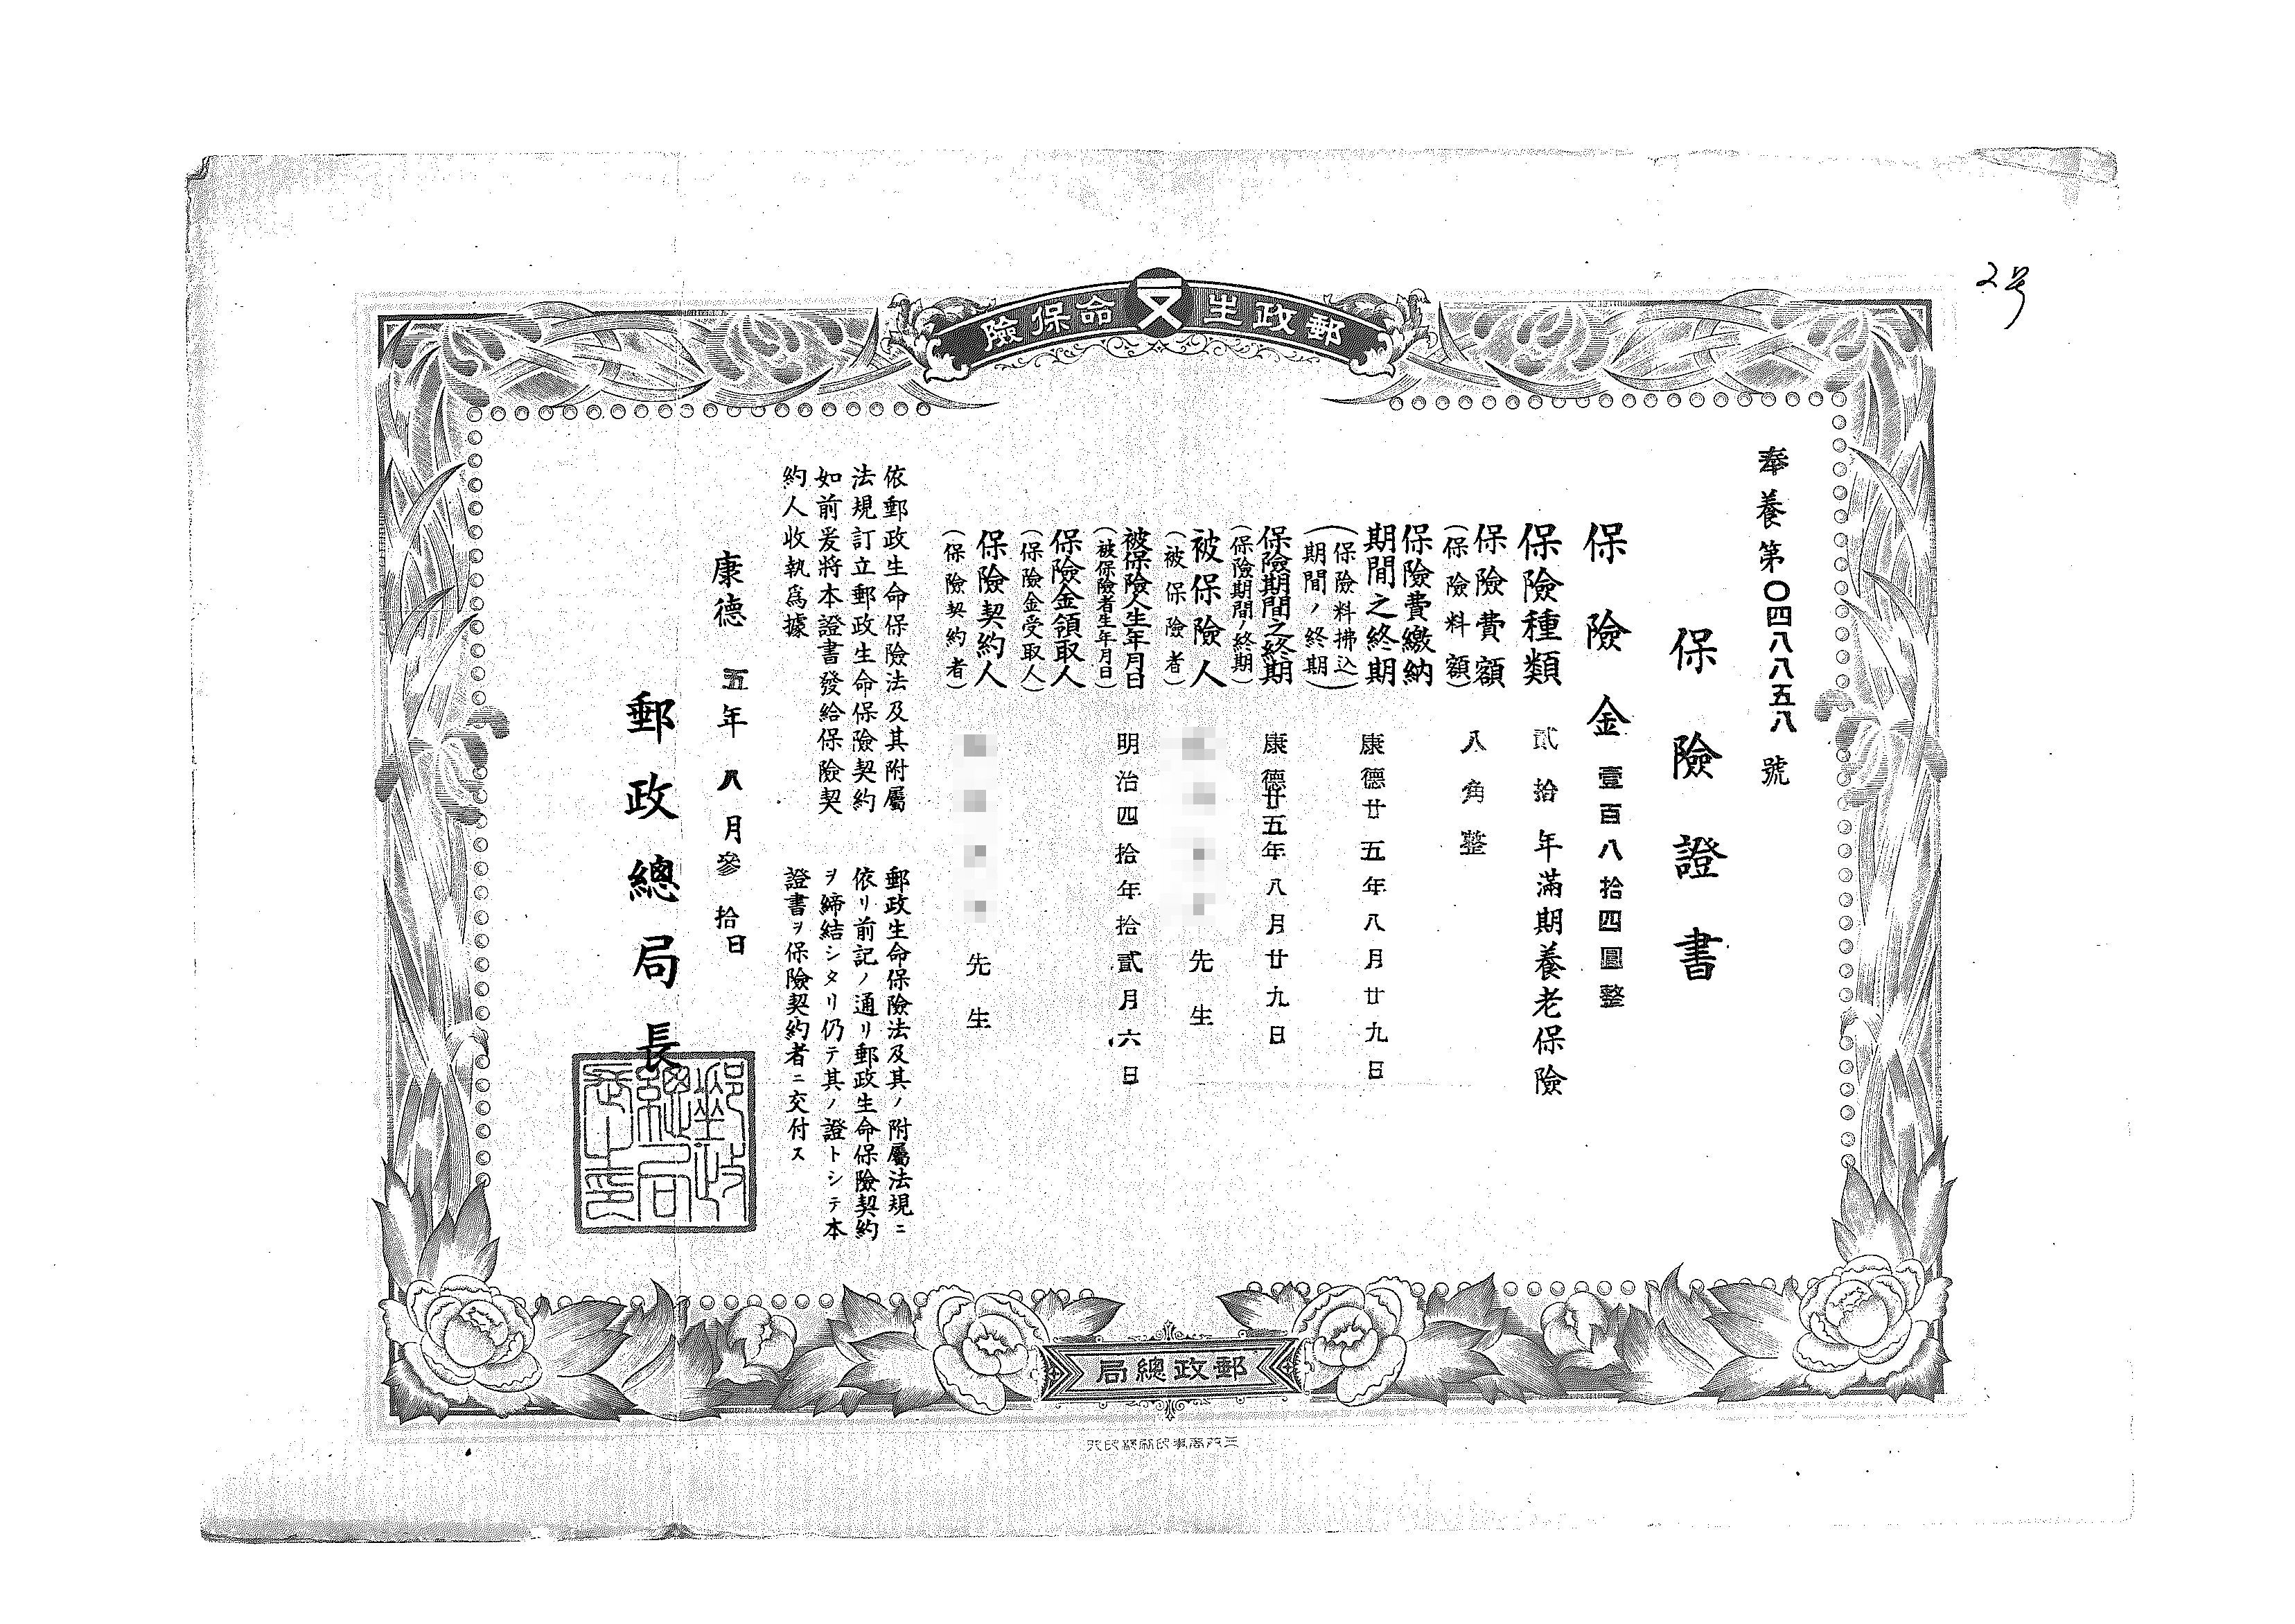 2号
郵政生命保險
奉養第〇四八八五八號
保險證書
保險金 壹百八拾四圓整
保險種類 貳拾年滿期養老保險
保險費額 八角整
(保險料額)
保險費繳納
期間之終期 康德廿五年八月廿九日
(保險料拂込
期間ノ終期)
保險期間之終期 康德廿五年八月廿九日
(保險期間ノ終期)
被保險人 先生
(被保險者)
被保險人生年月日 明治四拾年拾貳月六日
(被保險者生年月日)
保險金領取人
(保險金受取人)
保險契約人 先生
(保險契約者)
依郵政生命保險法及其附屬
法規訂立郵政生命保險契約
如前爰將本證書發給保險契
約人收執爲據
郵政生命保險法及其ノ附屬法規ニ
依リ前記ノ通リ郵政生命保險契約
ヲ締結シタリ仍テ其ノ證トシテ本
證書ヲ保險契約者ニ交付ス
康德 五年 八月參拾日
郵政總局長
郵政總局